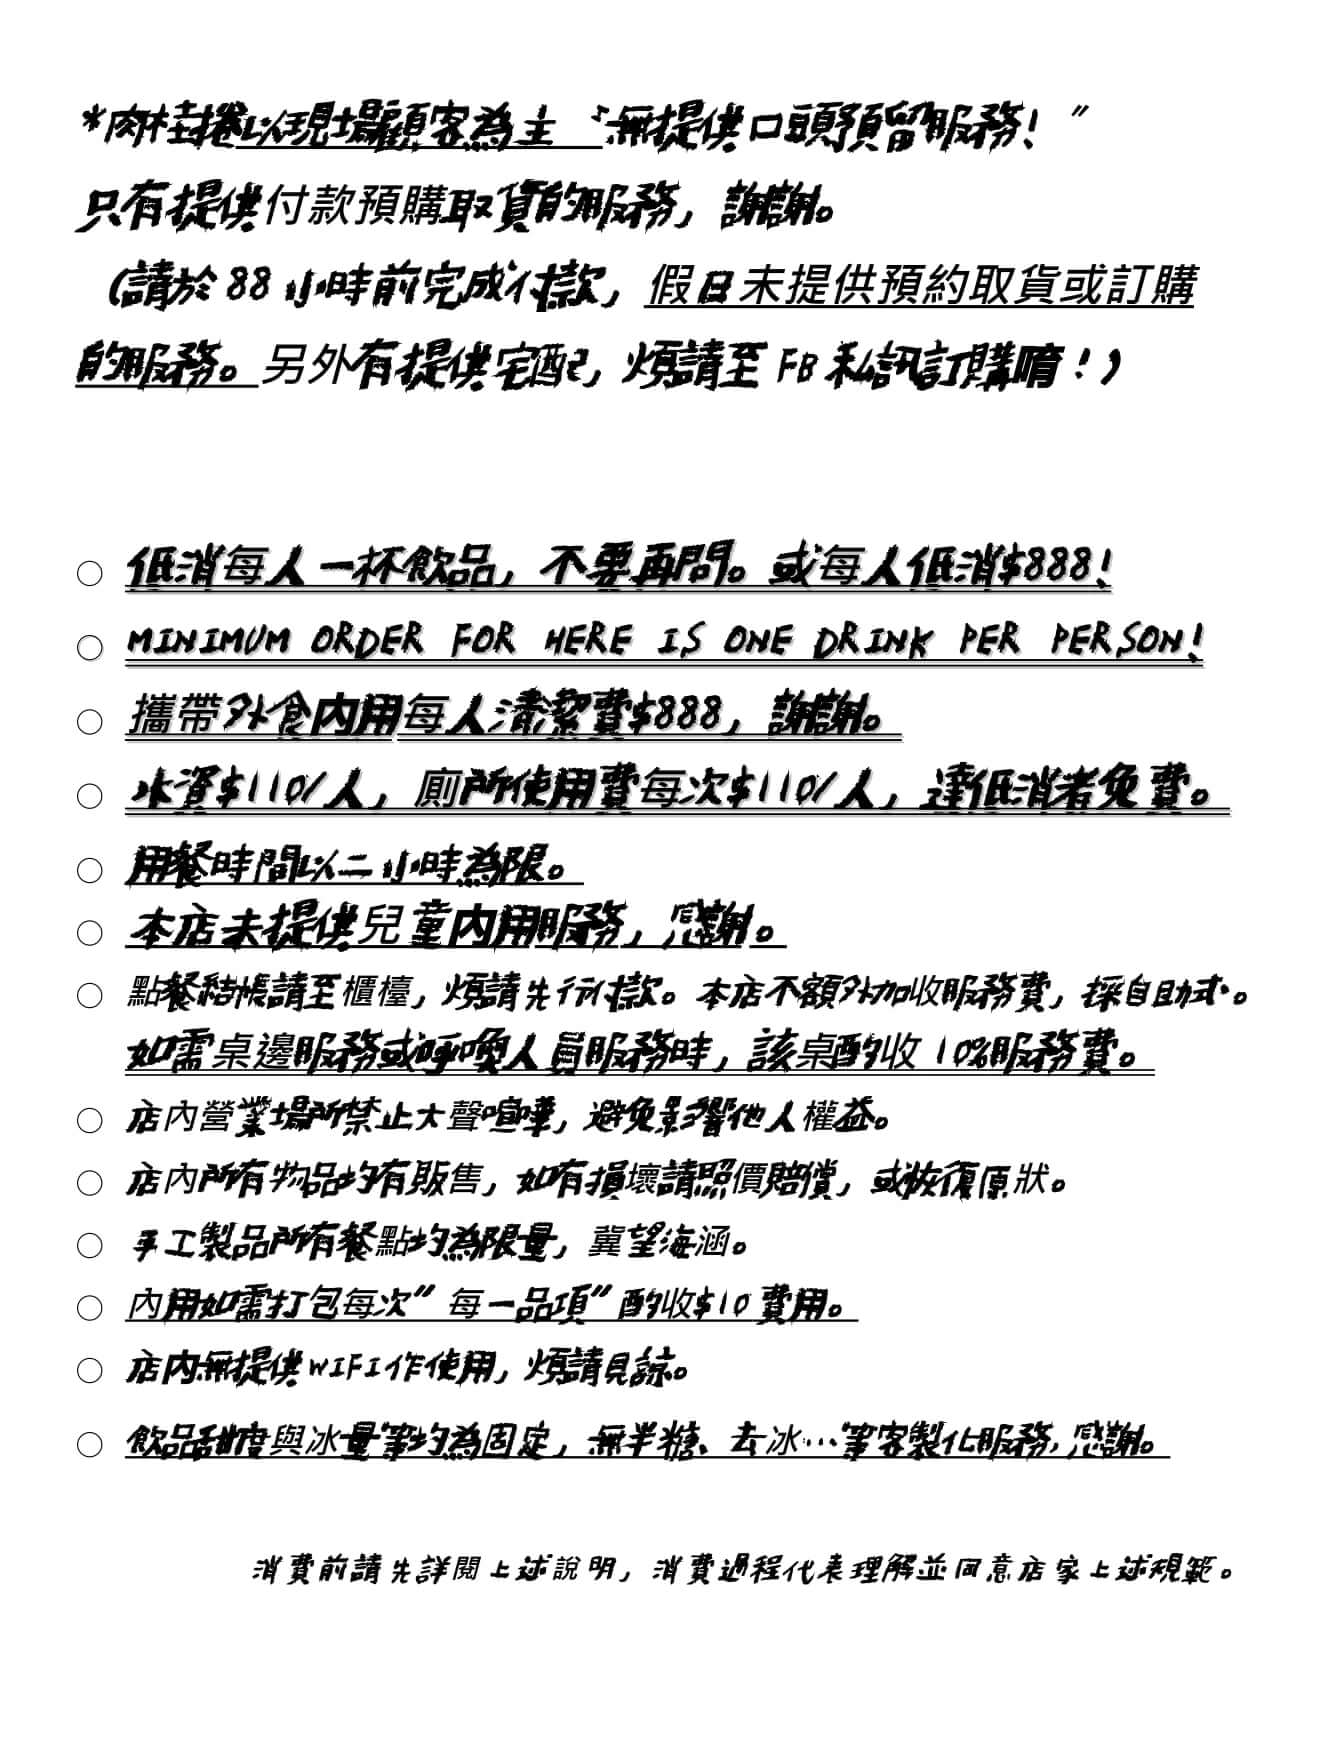 *肉桂捲以現場顧客為主〝無提供口頭預留服務!〞
只有提供付款預購取貨的服務，謝謝。
(請於88小時前完成付款，假日未提供預約取貨或訂購
的服務。另外有提供宅配，煩請至FB私訊訂購唷！)
○ 低消每人一杯飲品，不要再問。或每人低消$888!
○ MINIMUM ORDER FOR HERE IS ONE DRINK PER PERSON!
○ 攜帶外食內用每人清潔費$888，謝謝。
○ 水資$110/人，廁所使用費每次$110/人，達低消者免費。
○ 用餐時間以二小時為限。
○ 本店未提供兒童內用服務，感謝。
○ 點餐結帳請至櫃檯，煩請先行付款。本店不額外加收服務費，採自助式。
如需桌邊服務或呼喚人員服務時，該桌酌收10%服務費。
○ 店內營業場所禁止大聲喧嘩，避免影響他人權益。
○ 店內所有物品均有販售，如有損壞請照價賠償，或恢復原狀。
○ 手工製品所有餐點均為限量，冀望海涵。
○ 內用如需打包每次"每一品項"酌收$10費用。
○ 店內無提供WIFI作使用，煩請見諒。
○ 飲品甜度與冰量等均為固定，無半糖、去冰…等客製化服務，感謝。
消費前請先詳閱上述說明，消費過程代表理解並同意店家上述規範。